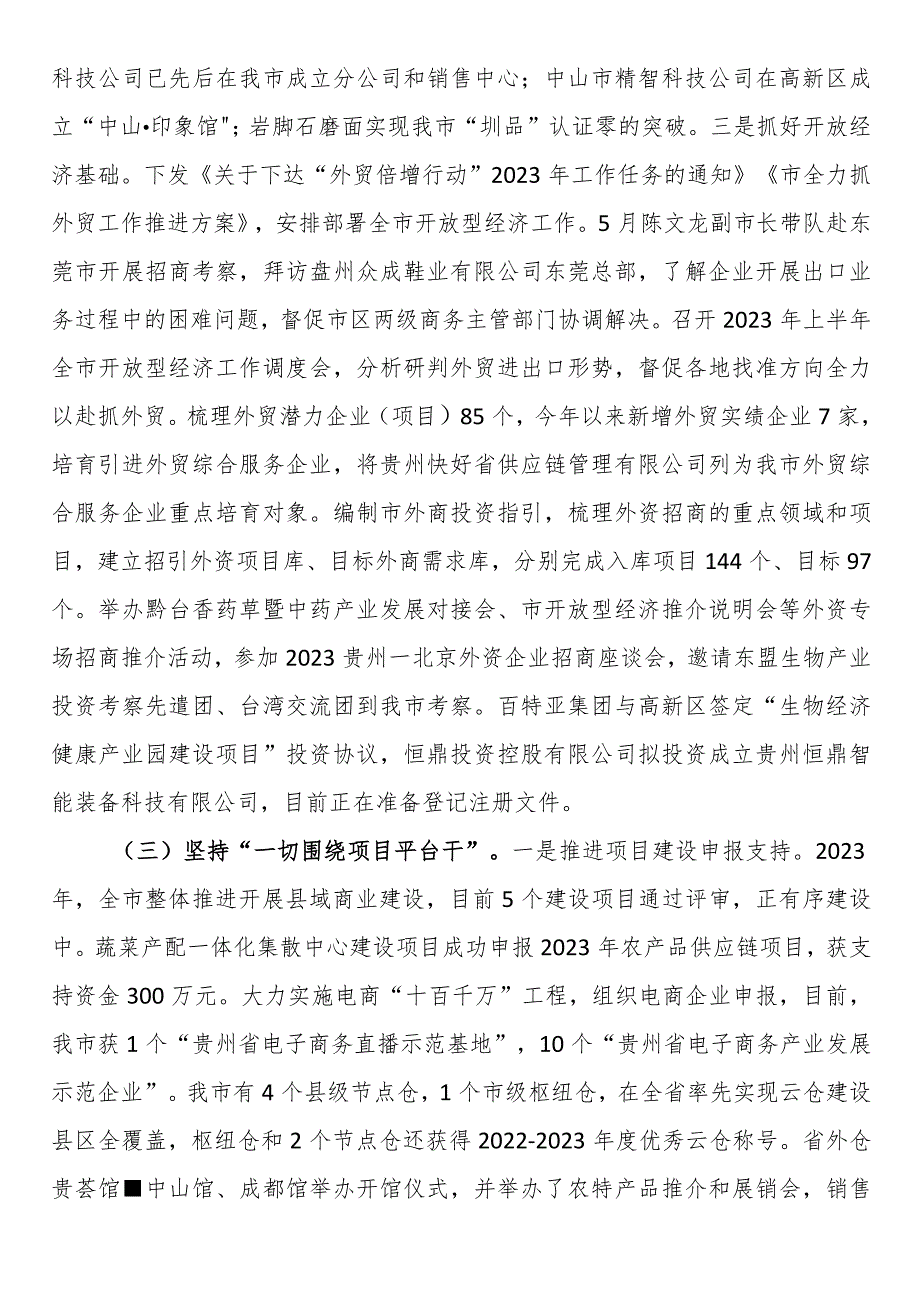 科技公司已先后在我市成立分公司和销售中心；中山市精智科技公司在高新区成
立“中山•印象馆"；岩脚石磨面实现我市“圳品”认证零的突破。三是抓好开放经
济基础。下发《关于下达“外贸倍增行动”2023 年工作任务的通知》《市全力抓
外贸工作推进方案》，安排部署全市开放型经济工作。5 月陈文龙副市长带队赴东
莞市开展招商考察，拜访盘州众成鞋业有限公司东莞总部，了解企业开展出口业
务过程中的困难问题，督促市区两级商务主管部门协调解决。召开 2023 年上半年
全市开放型经济工作调度会，分析研判外贸进出口形势，督促各地找准方向全力
以赴抓外贸。梳理外贸潜力企业（项目）85 个，今年以来新增外贸实绩企业 7 家，
培育引进外贸综合服务企业，将贵州快好省供应链管理有限公司列为我市外贸综
合服务企业重点培育对象。编制市外商投资指引，梳理外资招商的重点领域和项
目，建立招引外资项目库、目标外商需求库，分别完成入库项目 144 个、目标 97
个。举办黔台香药草暨中药产业发展对接会、市开放型经济推介说明会等外资专
场招商推介活动，参加 2023 贵州一北京外资企业招商座谈会，邀请东盟生物产业
投资考察先遣团、台湾交流团到我市考察。百特亚集团与高新区签定“生物经济
健康产业园建设项目”投资协议，恒鼎投资控股有限公司拟投资成立贵州恒鼎智
能装备科技有限公司，目前正在准备登记注册文件。
（三）坚持“一切围绕项目平台干”。一是推进项目建设申报支持。2023
年，全市整体推进开展县域商业建设，目前 5 个建设项目通过评审，正有序建设
中。蔬菜产配一体化集散中心建设项目成功申报 2023 年农产品供应链项目，获支
持资金 300 万元。大力实施电商“十百千万”工程，组织电商企业申报，目前，
我市获 1 个“贵州省电子商务直播示范基地”，10 个“贵州省电子商务产业发展
示范企业”。我市有 4 个县级节点仓，1 个市级枢纽仓，在全省率先实现云仓建设
县区全覆盖，枢纽仓和 2 个节点仓还获得 2022-2023 年度优秀云仓称号。省外仓
贵荟馆■中山馆、成都馆举办开馆仪式，并举办了农特产品推介和展销会，销售